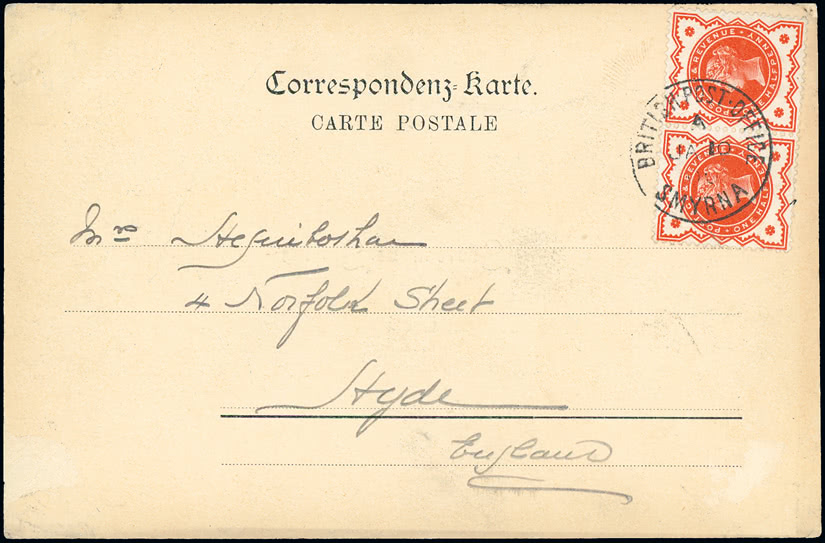 Correspondenz-Karte.
CARTE POSTALE
POSTAGE & REVENUE ONE HALFPENNY
BRITISH POST-OFFICE
A
JA 10
SMYRNA
POSTAGE & REVENUE ONE HALFPENNY
Mrs
4 Norfolk Street
Hyde
England